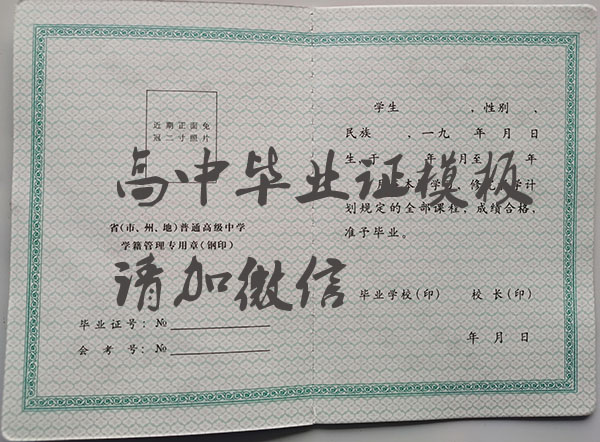 近期正面免
冠二寸照片
省(市、州、地)普通高级中学
学籍管理专用章(钢印)
毕业证号：№
会考号：№
学生 ，性别 、
民族 ，一九 年 月 日
生，于 年 月至 年
月 本 学 修 学计
划规定的全部课程，成绩合格，
准予毕业。
毕业学校(印) 校长(印)
年 月 日
高中毕业证模板
请加微信